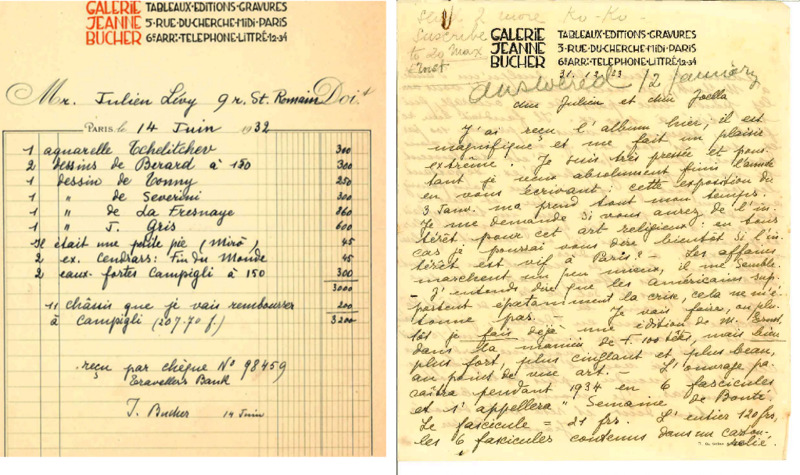 GALERIE JEANNE BUCHER
TABLEAUX·EDITIONS·GRAVURES
3·RUE·DU·CHERCHE·MIDI·PARIS
6e ARR:·TELEPHONE·LITTRÉ 12·34
Mr. Julien Lévy 9 r. St. Romain Doit
PARIS le 14 Juin 1932
1 aquarelle Tchelitchev 300
2 dessins de Berard à 150 300
1 dessin de Tonny 250
1 " de Severini 300
1 " de La Fresnaye 860
1 " J. Gris 600
Il était une petite pie (Miró) 45
2 ex. Cendrars: Fin du Monde 45
2 eaux-fortes Campigli à 150 300
3000
11 châssis que je vais rembourser 200
à Campigli (207.70 f.) 3200
reçu par chèque No 98459
Travellers Bank
J. Bucher 14 Juin
Send 2 more Ko-Ko-
Suscribe
to 20 Max
Ernst
GALERIE JEANNE BUCHER
TABLEAUX·EDITIONS·GRAVURES
3·RUE·DU·CHERCHE·MIDI·PARIS
6e ARR:·TELEPHONE·LITTRÉ 12·34
31. 12. 33
answered 12 January
cher Julien et chère Joella
J'ai reçu l'album hier; il est
magnifique et me fait un plaisir
extrême! Je suis très pressée et pour
tant je veux absolument finir l'année
en vous écrivant: cette exposition du
3 Janv. me prend tout mon temps.
Je me demande si vous aurez de l'in
térêt pour cet art religieux, en tous
cas je pourrai vous dire bientôt si l'in
térêt est vif à Paris! - Les affaires
marchent un peu mieux, il me semble.
J'entends dire que les américains sup
portent épatamment la crise, cela ne m'é
tonne pas. - Je vais faire, ou plu
tôt je fais déjà une édition de M. Ernst,
dans la manière de F. 100 têtes, mais bien
plus fort, plus cinglant et plus beau,
au point de vue art. - L'ouvrage pa
raîtra pendant 1934 en 6 fascicules
et s'appellera "Semaine de Bonté
Le fascicule = 21 frs. L'entier 120 frs,
les 6 fascicules contenus dans un carton-
relié.